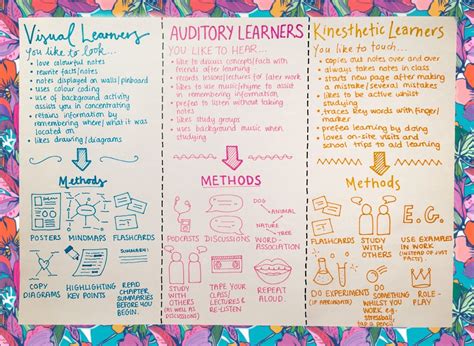 Visual Learners
You like to look...
• love colourful notes
• rewrite facts/notes
• notes displayed on walls/pinboard
• uses colour coding
• use of background activity
assists you in concentrating
• retains information by
remembering where/what it was
located on
• likes drawing/diagrams
Methods
POSTERS
MINDMAPS
FLASHCARDS
COPY
DIAGRAMS
HIGHLIGHTING
KEY POINTS
READ
CHAPTER
SUMMARIES
BEFORE YOU
BEGIN.
AUDITORY LEARNERS
YOU LIKE TO HEAR...
• like to discuss concepts/facts with
friends after learning
• records lessons/lectures for later work
• likes to use music/rhyme to assist
in remembering information
• prefers to listen without taking
notes
• likes study groups
• uses background music when
studying
METHODS
DOG
ANIMAL
NATURE
TREE
PODCASTS
DISCUSSIONS
WORD-
ASSOCIATION
STUDY
WITH
OTHERS
(AS WELL AS
DISCUSSIONS)
TAPE YOUR
CLASS/
LECTURES &
RE-LISTEN
REPEAT
ALOUD
Kinesthetic Learners
You like to touch...
• copies out notes over and over
• always takes notes in class
• start new page after making
a mistake/several mistakes
• likes to be active whilst
studying
• traces key words with finger/
marker
• prefers learning by doing
• loves on-site visits and
school trips to aid learning
Methods
E.G.
FLASHCARDS
STUDY
WITH
OTHERS
USE EXAMPLES
IN WORK
(INSTEAD OF JUST
FACTS).
DO EXPERIMENTS
(IF APPROPRIATE)
DO
SOMETHING
WHILST YOU
WORK e.g.
stressball,
tap a pencil
ROLE-
PLAY